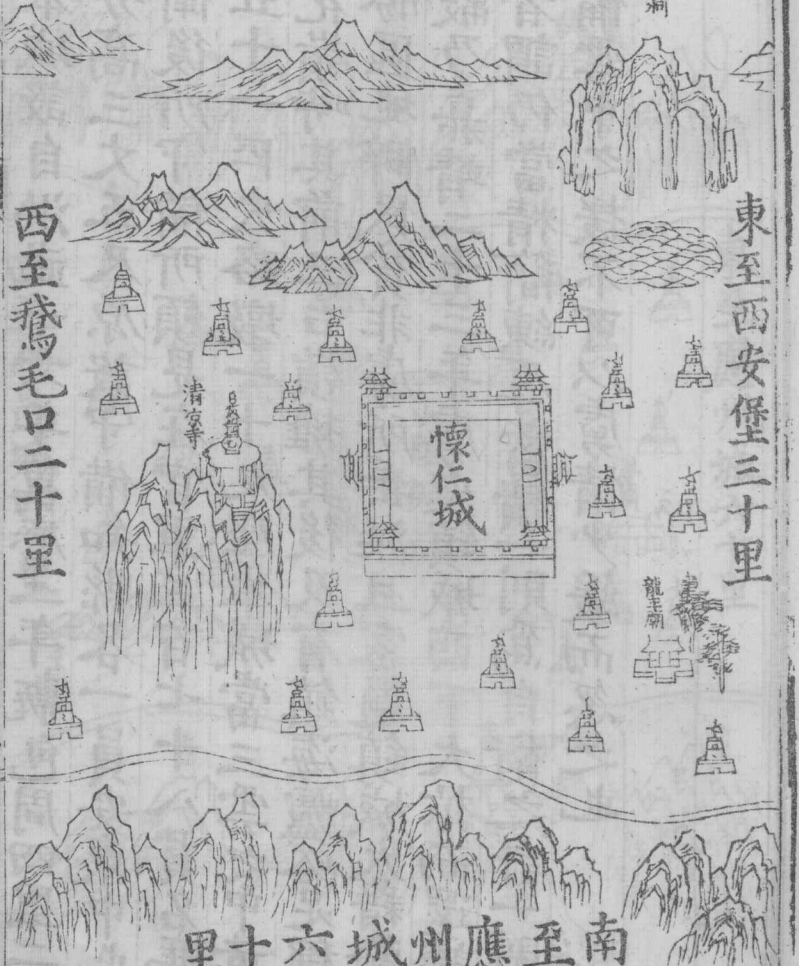 洞
東至西安堡三十里
西至鵝毛口二十里
清涼寺
懷仁城
龍王廟
南至應州城六十里